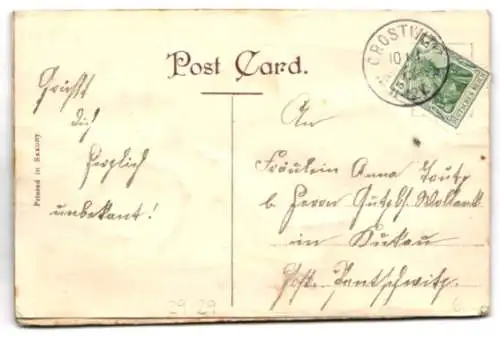 Post Card.
CROSTWITZ
10
DEUTSCHES REICH
Printed in Saxony
Grüßt
dich
herzlich
unbekannt!
An
Fräulein Anna
b. Herrn Gutsbs. Wollank
in Kukau
Post. Pantschwitz.
29 29